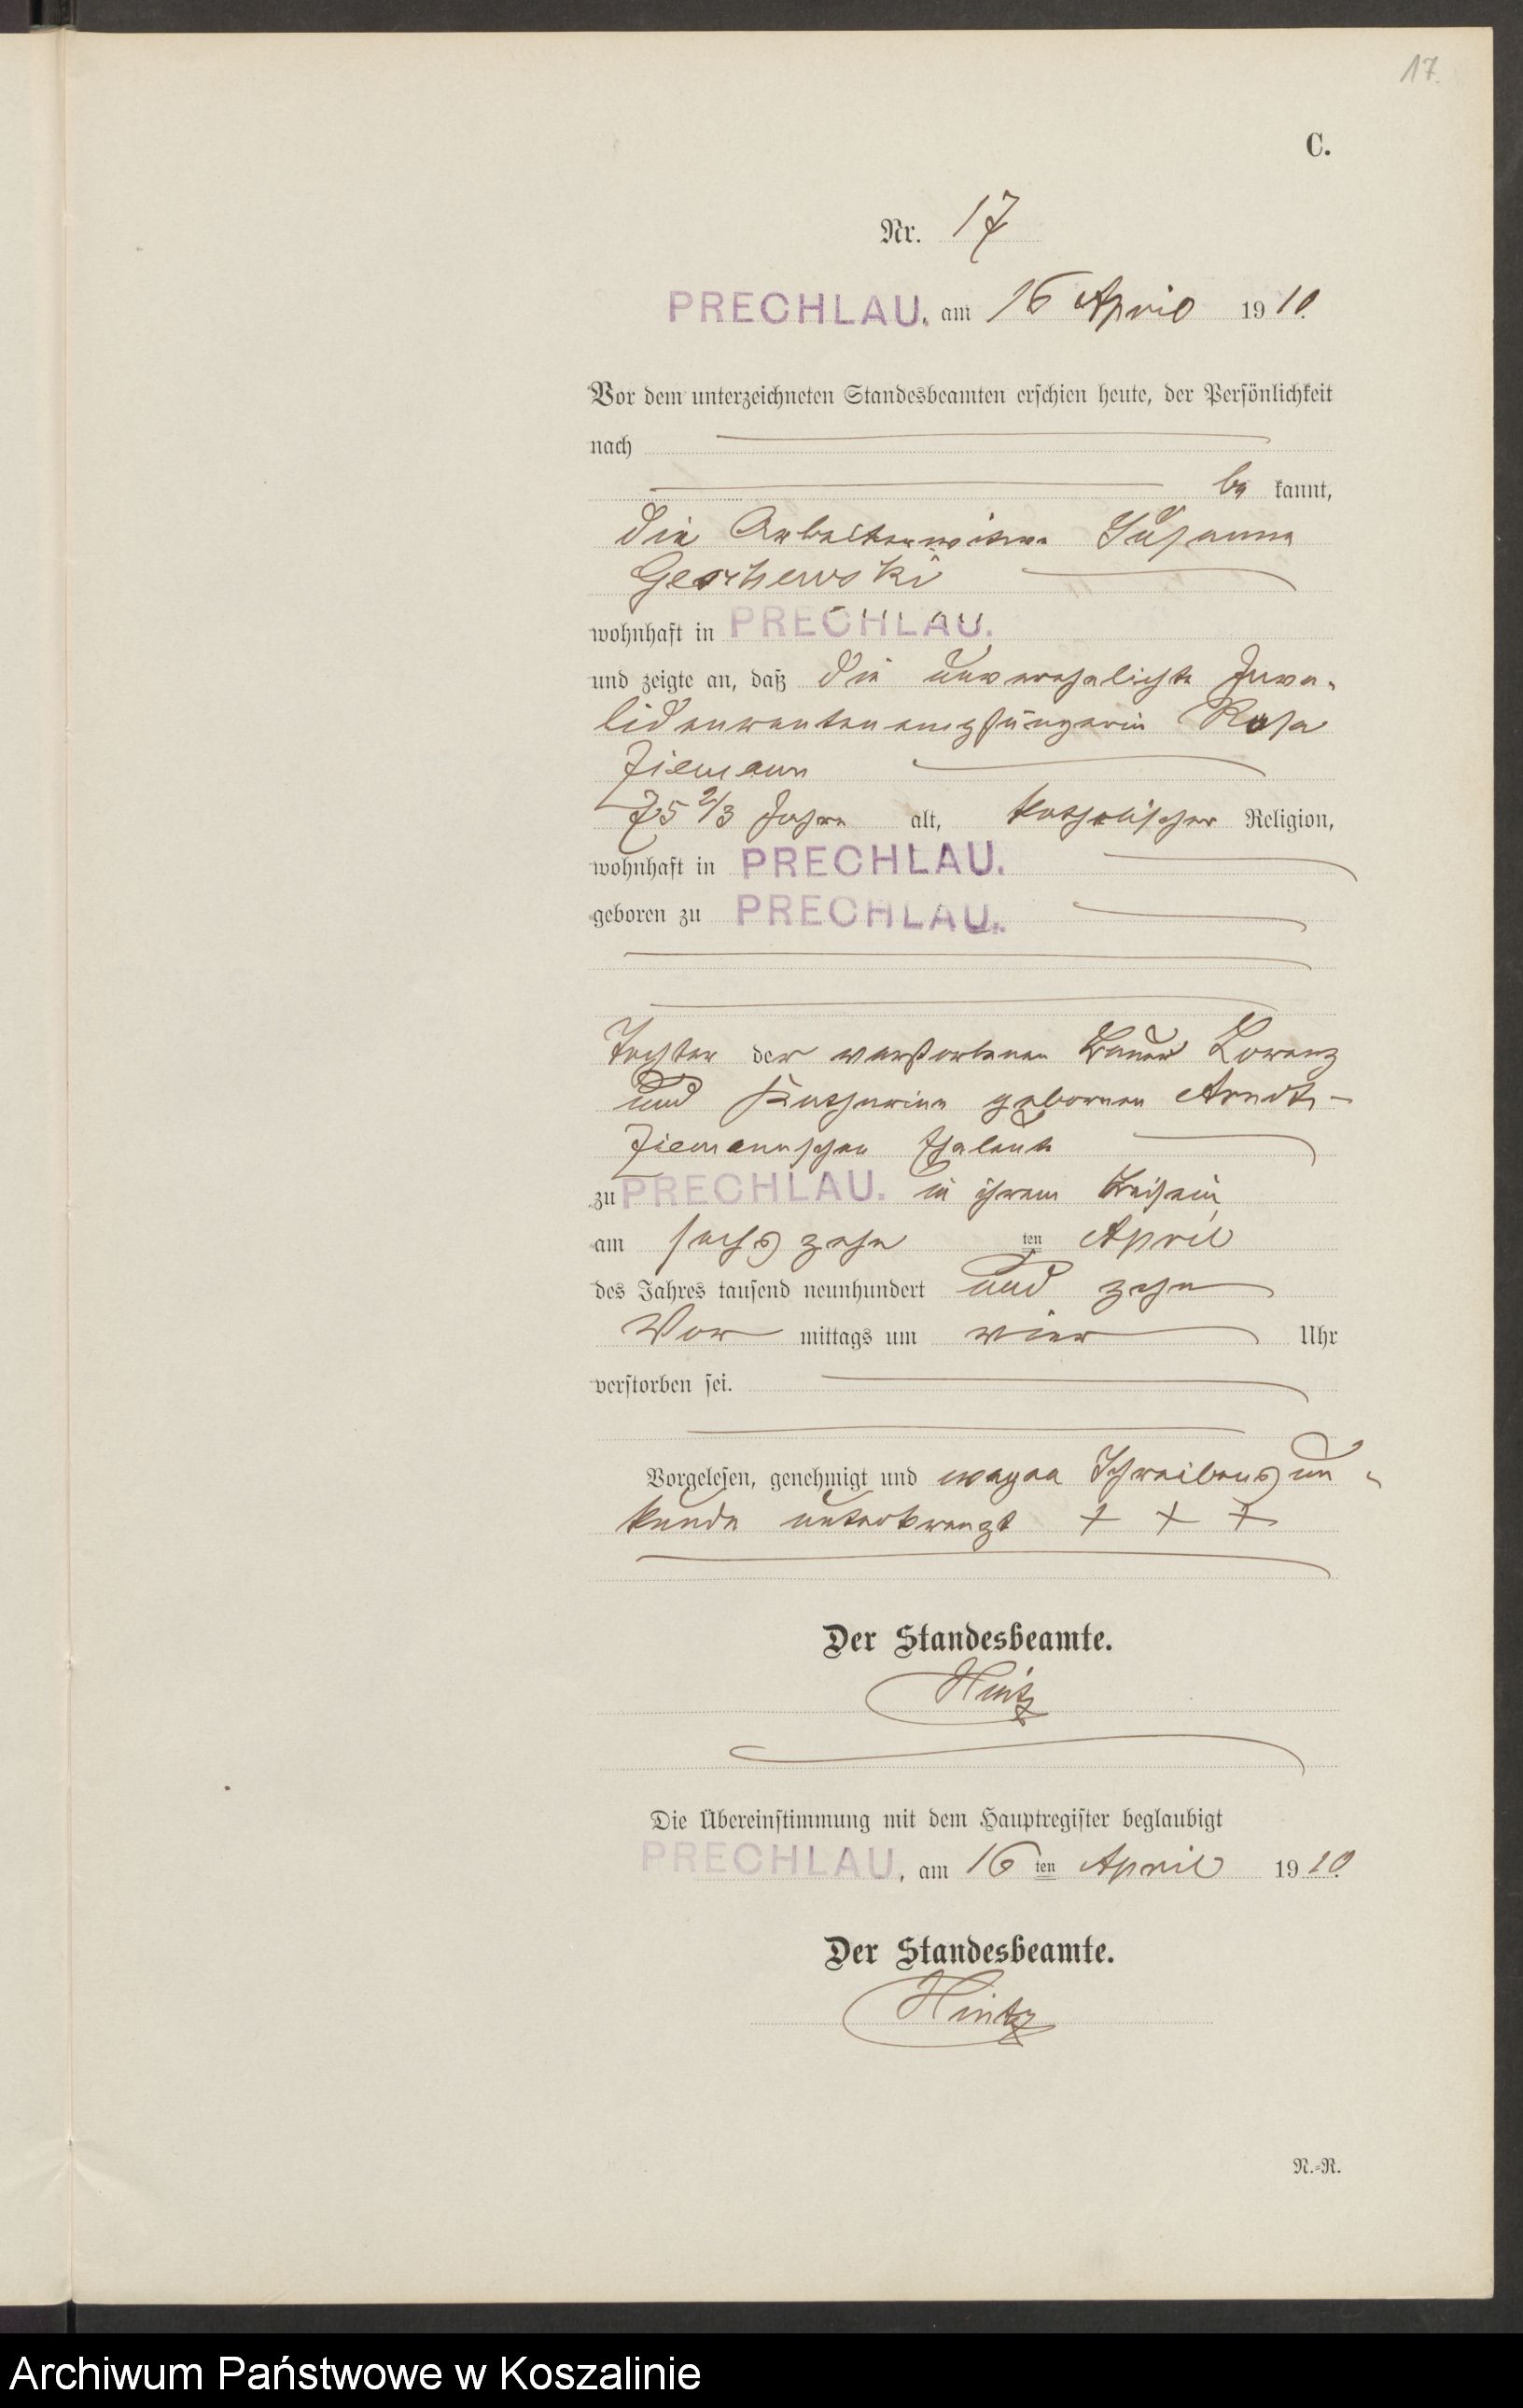 17.
C.
Nr. 17
PRECHLAU, am 16 April 1910.
Vor dem unterzeichneten Standesbeamten erschien heute, der Persönlichkeit
nach
be kannt,
die Arbeiterwitwe Susanna
Gerschewski
wohnhaft in PRECHLAU.
und zeigte an, daß die unverehelichte Inva-
lidenrentenempfängerin Rosa
Ziemann
75 2/3 Jahre alt, katholischer Religion,
wohnhaft in PRECHLAU.
geboren zu PRECHLAU.
Tochter der verstorbenen Bauer Lorenz
und Katharina geborenen Arndt-
Ziemannschen Eheleute
zu PRECHLAU. in ihrem Beisein
am sechszehn ten April
des Jahres tausend neunhundert und zehn
Vor mittags um vier Uhr
verstorben sei.
Vorgelesen, genehmigt und wegen Schreibensun-
kunde unterkreuzt + + +
Der Standesbeamte.
Hintz
Die Übereinstimmung mit dem Hauptregister beglaubigt
PRECHLAU, am 16 ten April 1910.
Der Standesbeamte.
Hintz
N.-R.
Archiwum Państwowe w Koszalinie